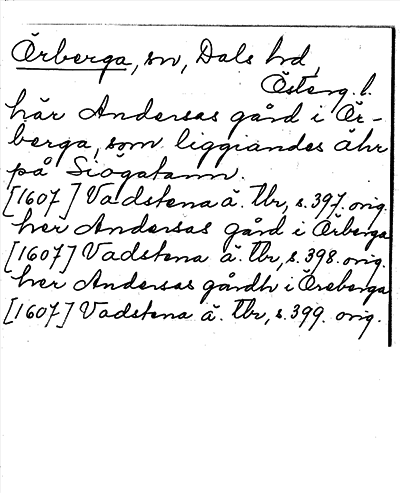 Örberga, sn, Dals hd,
Österg. l.
här Andersas gård i Ör-
berga, som liggiandes ähr
på Siögatann.
[1607] Vadstena ä. tbr, s. 397. orig.
her Andersas gård i Örberga
[1607] Vadstena ä. tbr, s. 398. orig.
her Andersas gårdh i Öreberga
[1607] Vadstena ä. tbr, s. 399. orig.